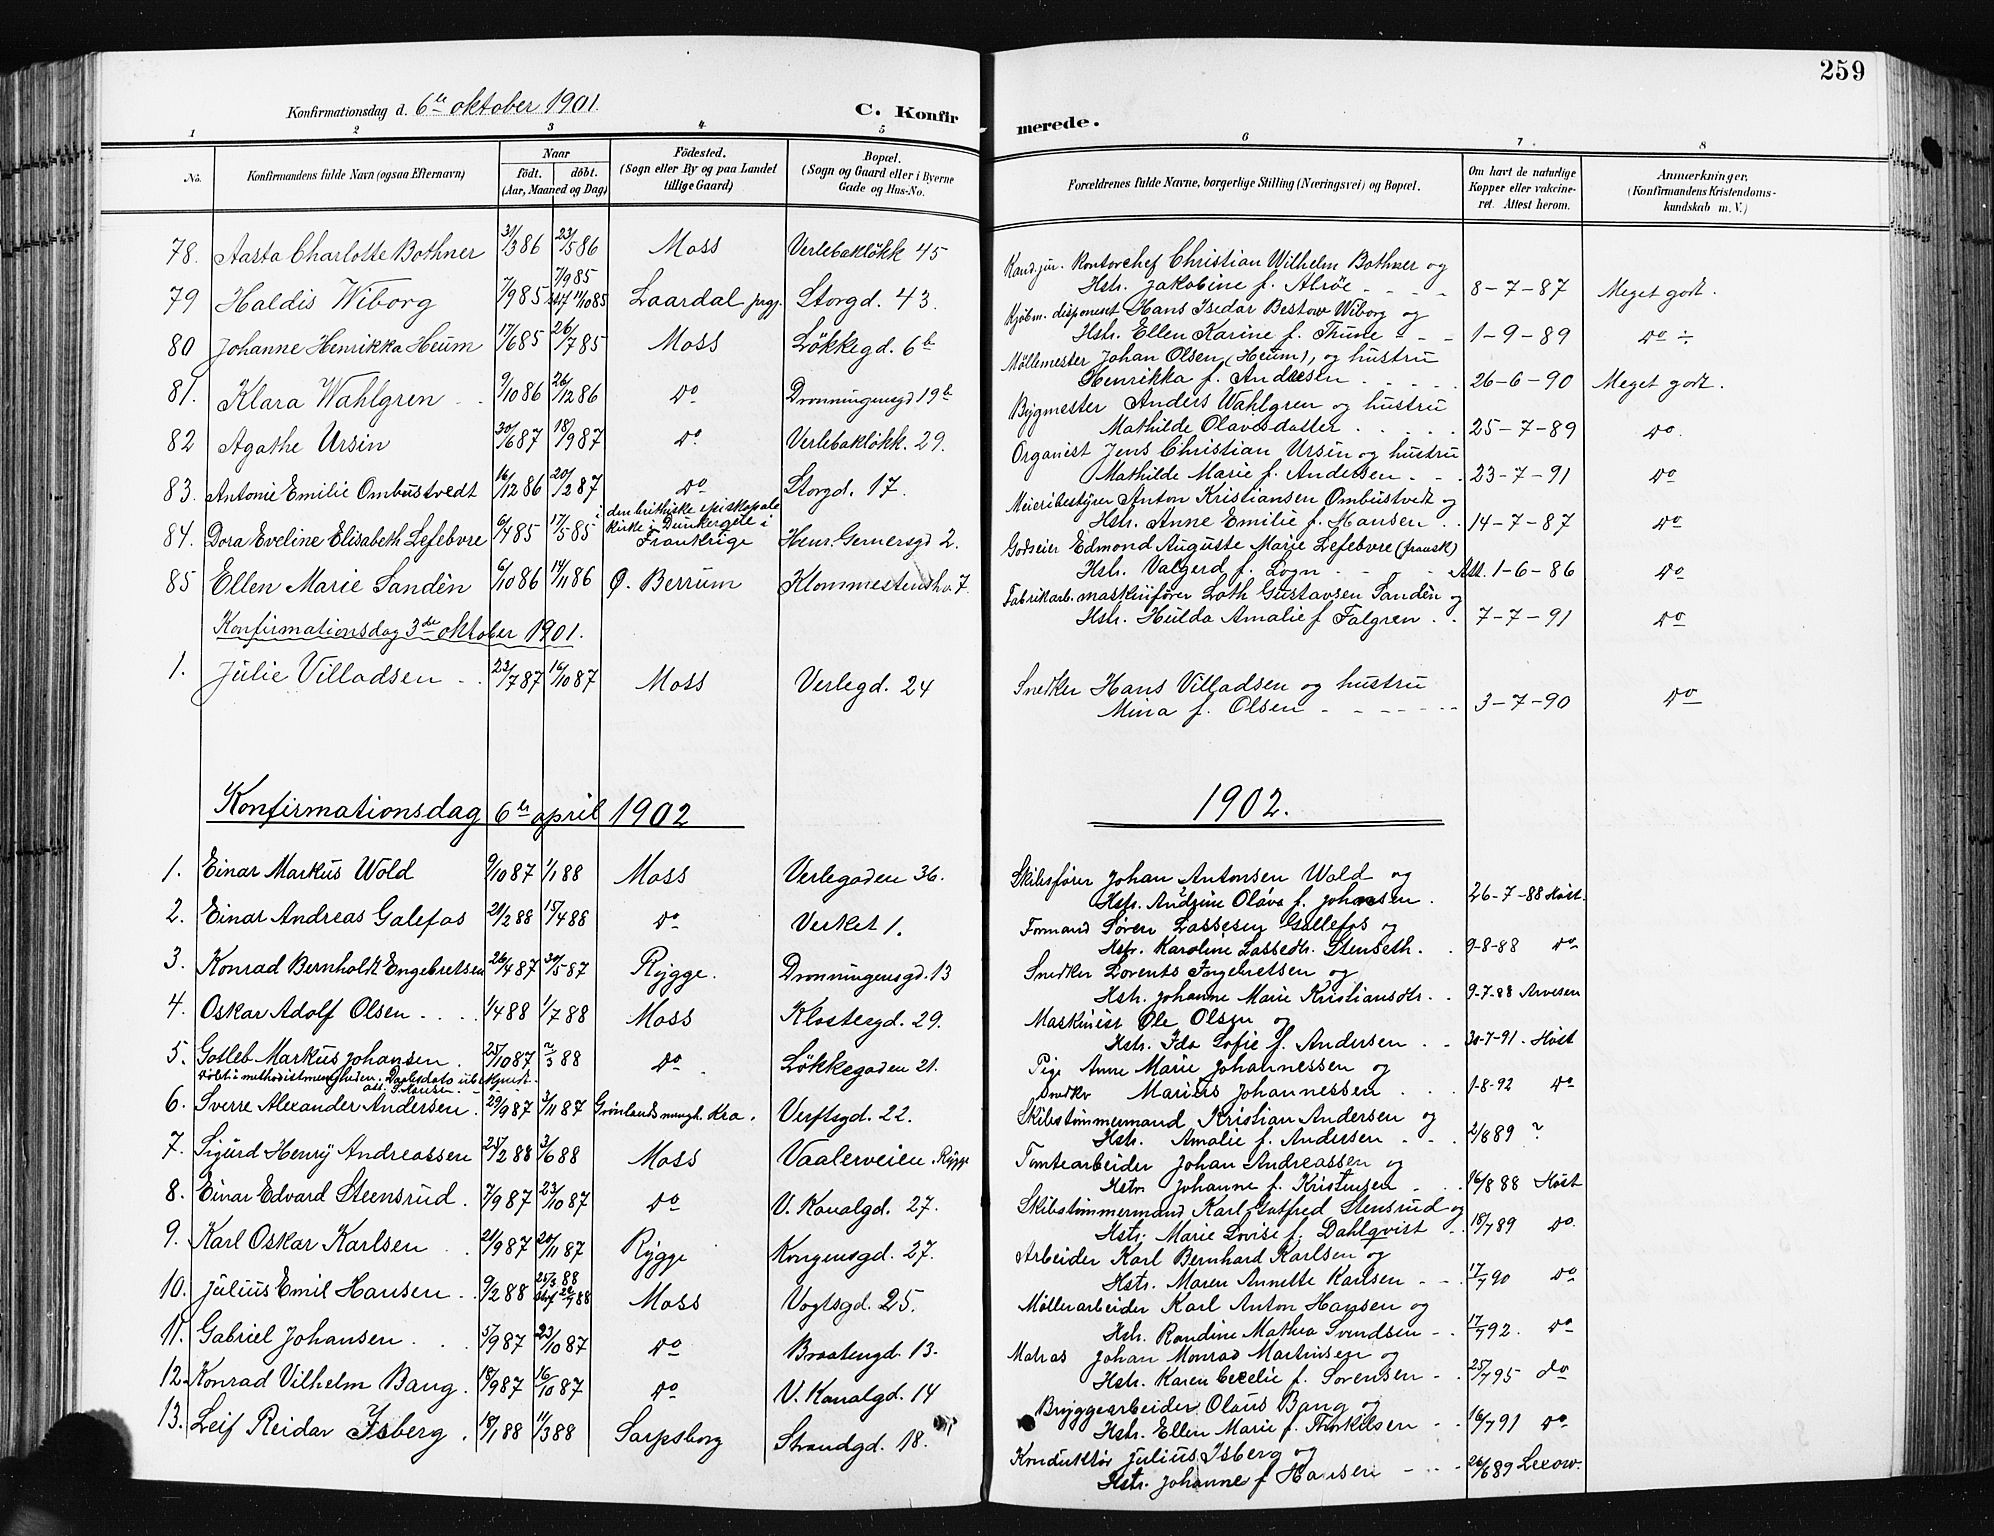 259
Konfirmationsdag d. 6te oktober 1901.
C. Konfirmerede.
1 2 3 4 5 6 7 8
No. Konfirmandens fulde Navn (ogsaa Efternavn) Naar født. døbt. (Aar, Maaned og Dag) Fødested. (Sogn eller By og paa Landet tillige Gaard) Bopæl. (Sogn og Gaard eller i Byerne Gade og Hus-No. Forældrenes fulde Navne, borgerlige Stilling (Næringsvei) og Bopæl. Om havt de naturlige Kopper eller vakcineret. Attest herom. Anmærkninger, (Konfirmandens Kristendomskundskab m. V.)
78. Aasta Charlotte Bothner 31/3 86 23/5 86 Moss Verlebakløkk 45 Kand. jur. Kontorchef Christian Wilhelm Bothner og
Hstr. Jakobine f. Alrøe 8-7-87 Meget godt.
79 Haldis Wiborg 7/9 85 7/9 85 stf 11/10 85 Laardal prgj. Storgd. 43. Kjøbm. disponent Hans Isedar Bestow Wiborg og
Hstr. Ellen Karine f. Thune 1-9-89 Do ÷
80 Johanne Henrikka Heum 17/6 85 26/7 85 Moss Løkkegd. 6b Møllemester Johan Olsen (Heum), og hustru
Henrikka f. Andersen 26-6-90 Meget godt.
81. Klara Wahlgren 9/10 86 26/12 86 Do Dronningensgd 19b Bygmester Anders Wahlgren og hustru
Mathilde Olavesdatter 25-7-89 Do.
82 Agathe Ursin 30/6 87 18/9 87 Do Verlebakløkk. 29. Organist Jens Christian Ursin og hustru
Mathilde Marie f. Andersen 23-7-91 Do
83. Antonie Emilie Ombustvedt 16/12 86 20/2 87 Do Storgd. 17. Meieribestyrer Anton Kristiansen Ombustvedt og
Hstr. Anne Emilie f. Hansen 14-7-87 Do
84. Dora Eveline Elisabeth Lefebvre 6/4 85 17/5 85 i den britiske episkopale kirke i Dunkerqele i Frankrige Henr. Gernersgd 2. Godseier Edmond Auguste Marie Lefebvre (fransk)
Hstr. Valgerd f. Logn Att. 1-6-86 Do
85 Ellen Marie Sandèn 6/10 86 14/11 86 Ø. Berrum Klommestenshv. 7. Fabrikarb. maskinfører Loth Gustavsen Sandèn og
Hstr. Hulda Amalie f. Falgren 7-7-91 Do
Konfirmationsdag 3die oktober 1901.
1. Julie Villadsen 23/7 87 16/10 87 Moss Verlegd. 24 Snedker Hans Villadsen og hustru
Mina f. Olsen 3-7-90 Do
Konfirmationsdag 6te april 1902
1902.
1. Einar Markus Wold 9/10 87 1/1 88 Moss Verlegaden 36. Skibsfører Johan Antonsen Wold og
Hstr. Andrine Olava f. Johansen. 26-7-88 Høst.
2. Einar Andreas Galefos 21/2 88 15/4 88 Do Verket 1. Formand Søren Lassesen Gallefos og
Hstr. Karoline Lassedtr. Stenseth. 9-8-88 Do
3. Konrad Bernholdt Engebretsen 26/4 87 30/5 87 Rygge. Dronningensgd. 13 Snedker Lorents Ingebretsen og
Hstr. Johanne Marie Kristiansdtr. 9-7-88 Arvesen
4. Oskar Adolf Olsen 1/4 88 1/7 88 Moss Klostergd. 29. Maskinist Ole Olsen og
Hstr. Ida Sofie f. Andersen 30-7-91. Høst
5. Gotleb Markus Johansen 25/10 87 2/3 88 Do Løkkegaden 21. Pige Anne Marie Johannessen og
Døbt i methodistmenigheden. Daabsdato ubekjendt.
Snedker Marius Johannessen 1-8-92 Do
6. Sverre Alexander Andersen 29/9 87 3/11 87 Grønlands mengh. Kra. Verftsgd. 22. Skibstømmermand Kristian Andersen og
Hstr. Amalie f. Andersen 2/8 89 ?
7. Sigurd Henry Andreassen 25/2 88 3/6 88 Moss Vaalerveien. Rygge Tomtearbeider Johan Andreassen og
Hstr. Johanne f. Kristensen 16/8 88 Høst
8. Einar Edvard Steensrud. 7/9 87 23/10 87 Do V. Kanalgd. 27. Skibstømmermand Karl Gotfred Stensrud og
Hstr. Marie Lovise f. Dahlqvist 18/7 89 Do.
9. Karl Oskar Karlsen 21/9 87 20/11 87 Rygge Kongensgd. 27. Arbeider Karl Bernhard Karlsen og
Hstr. Maren Annette Karlsen 17/7 90 Do
10. Julius Emil Hansen 9/2 88 25/3 88 stf 22/7 88 Moss Vogtsgd. 25. Møllerarbeider Karl Anton Hansen og
Hstr. Randine Mathea Svendsen 17/7 92. Do
11. Gabriel Johansen. 5/9 87 23/10 87 Do Braatengd. 13. Matros Johan Monrad Martinsen og
Hstr. Karen Cecelie f. Sørensen 25/7 95 do
12. Konrad Vilhelm Bang. 18/9 87 16/10 87 Do V. Kanalgd. 14 Bryggearbeider Olaus Bang og
Hstr. Ellen Marie f. Thorkilsen 16/7 91 Do
13. Leif Reidar Isberg. 18/1 88 11/3 88 Sarpsborg Strandgd. 18. Konduktør Julius Isberg og
Hstr. Johanne f Hansen 26/6 89 Lexow.